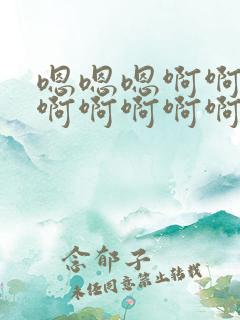 嗯嗯嗯啊啊
啊啊啊啊啊
念郁子
未经同意禁止转载